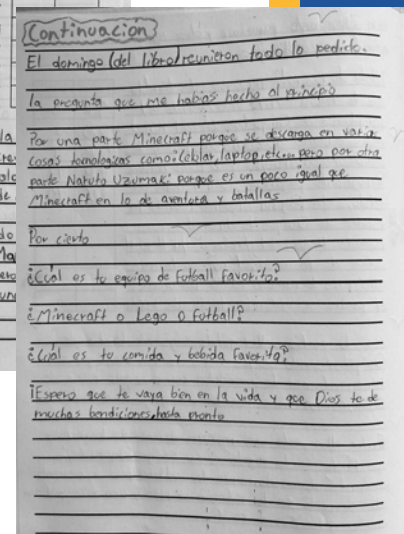 Continuación
El domingo (del libro) reunieron todo lo pedido.
la pregunta que me habías hecho al principio
Por una parte Minecraft porque se descarga en varias
cosas tecnologicas como: Celular, laptop, etc... pero por otra
parte Naruto Uzumaki porque es un poco igual que
Minecraft en lo de aventura y batallas
Por cierto
¿Cuál es tu equipo de Futball Favorito?
¿Minecraft o Lego o futball?
¿Cuál es tu comida y bebida favorita?
¡Espero que te vaya bien en la vida y que Dios te de
muchas bendiciones, hasta pronto